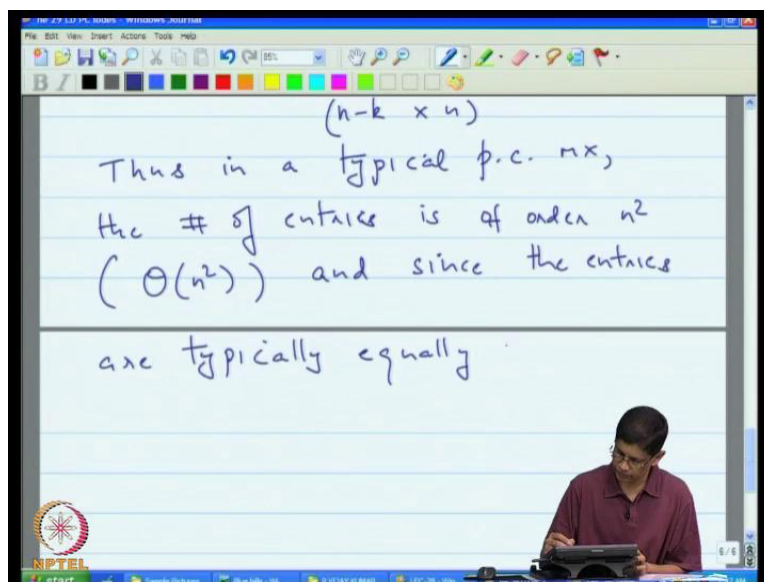 File Edit View Insert Actions Tools Help
85%
B I
(n-k x n)
Thus in a typical p.c. mx,
the # of entries is of order n²
( Θ(n²) ) and since the entries
are typically equally
6/6
NPTEL
start